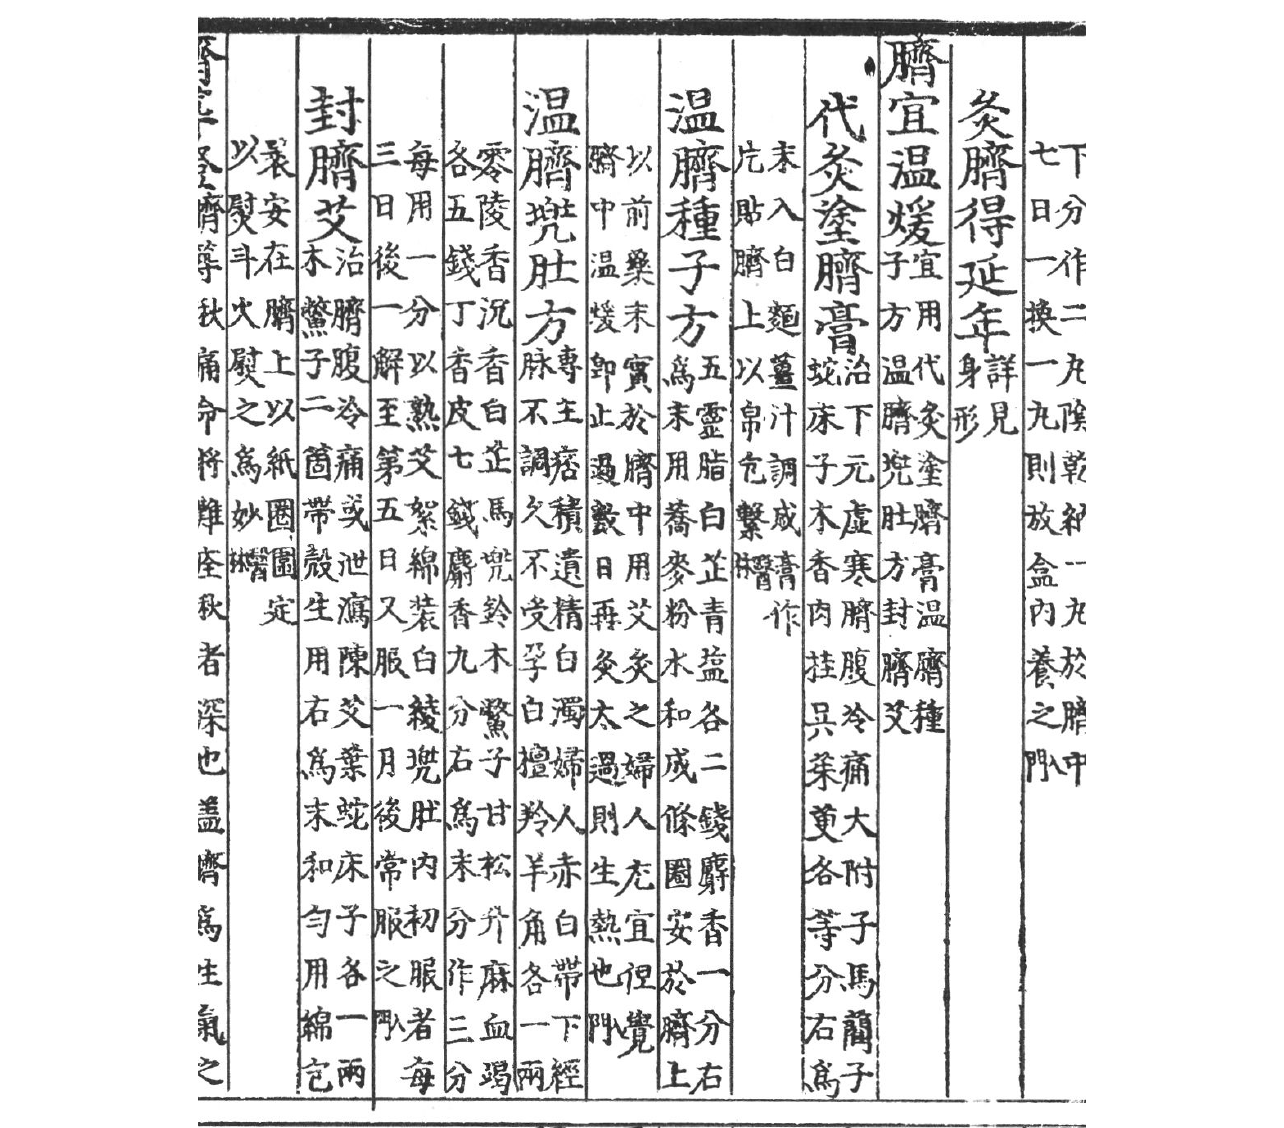 下分作二丸陰乾紙一丸於臍中
七日一換一丸則放盒內養之入門
灸臍得延年
詳見
身形
臍宜温煖
宜用代灸塗臍膏温臍種
子方温臍兜肚方封臍艾
代灸塗臍膏
治下元虛寒臍腹冷痛大附子馬藺子
蛇床子木香肉桂吳茱萸各等分右爲
末入白麵薑汁調成膏作
片貼臍上以帛包繫醫林
温臍種子方
五靈脂白芷青塩各二錢麝香一分右
爲末用蕎麥粉水和成條圈安於臍上
以前藥末實於臍中用艾灸之婦人尤宜但覺
臍中温煖卽止過數日再灸太過則生熱也入門
温臍兜肚方
專主痞積遺精白濁婦人赤白帶下經
脉不調久不受孕白檀羚羊角各一兩
零陵香沉香白芷馬兜鈴木鱉子甘松升麻血竭
各五錢丁香皮七錢麝香九分右爲末分作三分
每用一分以熟艾絮綿装白綾兜肚內初服者每
三日後一解至第五日又服一月後常服之入門
封臍艾
治臍腹冷痛或泄瀉陳艾葉蛇床子各一兩
木鱉子二箇帶殼生用右爲末和勻用綿包
裹安在臍上以紙圈圍定
以熨斗火熨之爲妙醫林
臍秋痛命將難痊秋者深也盖臍爲生氣之